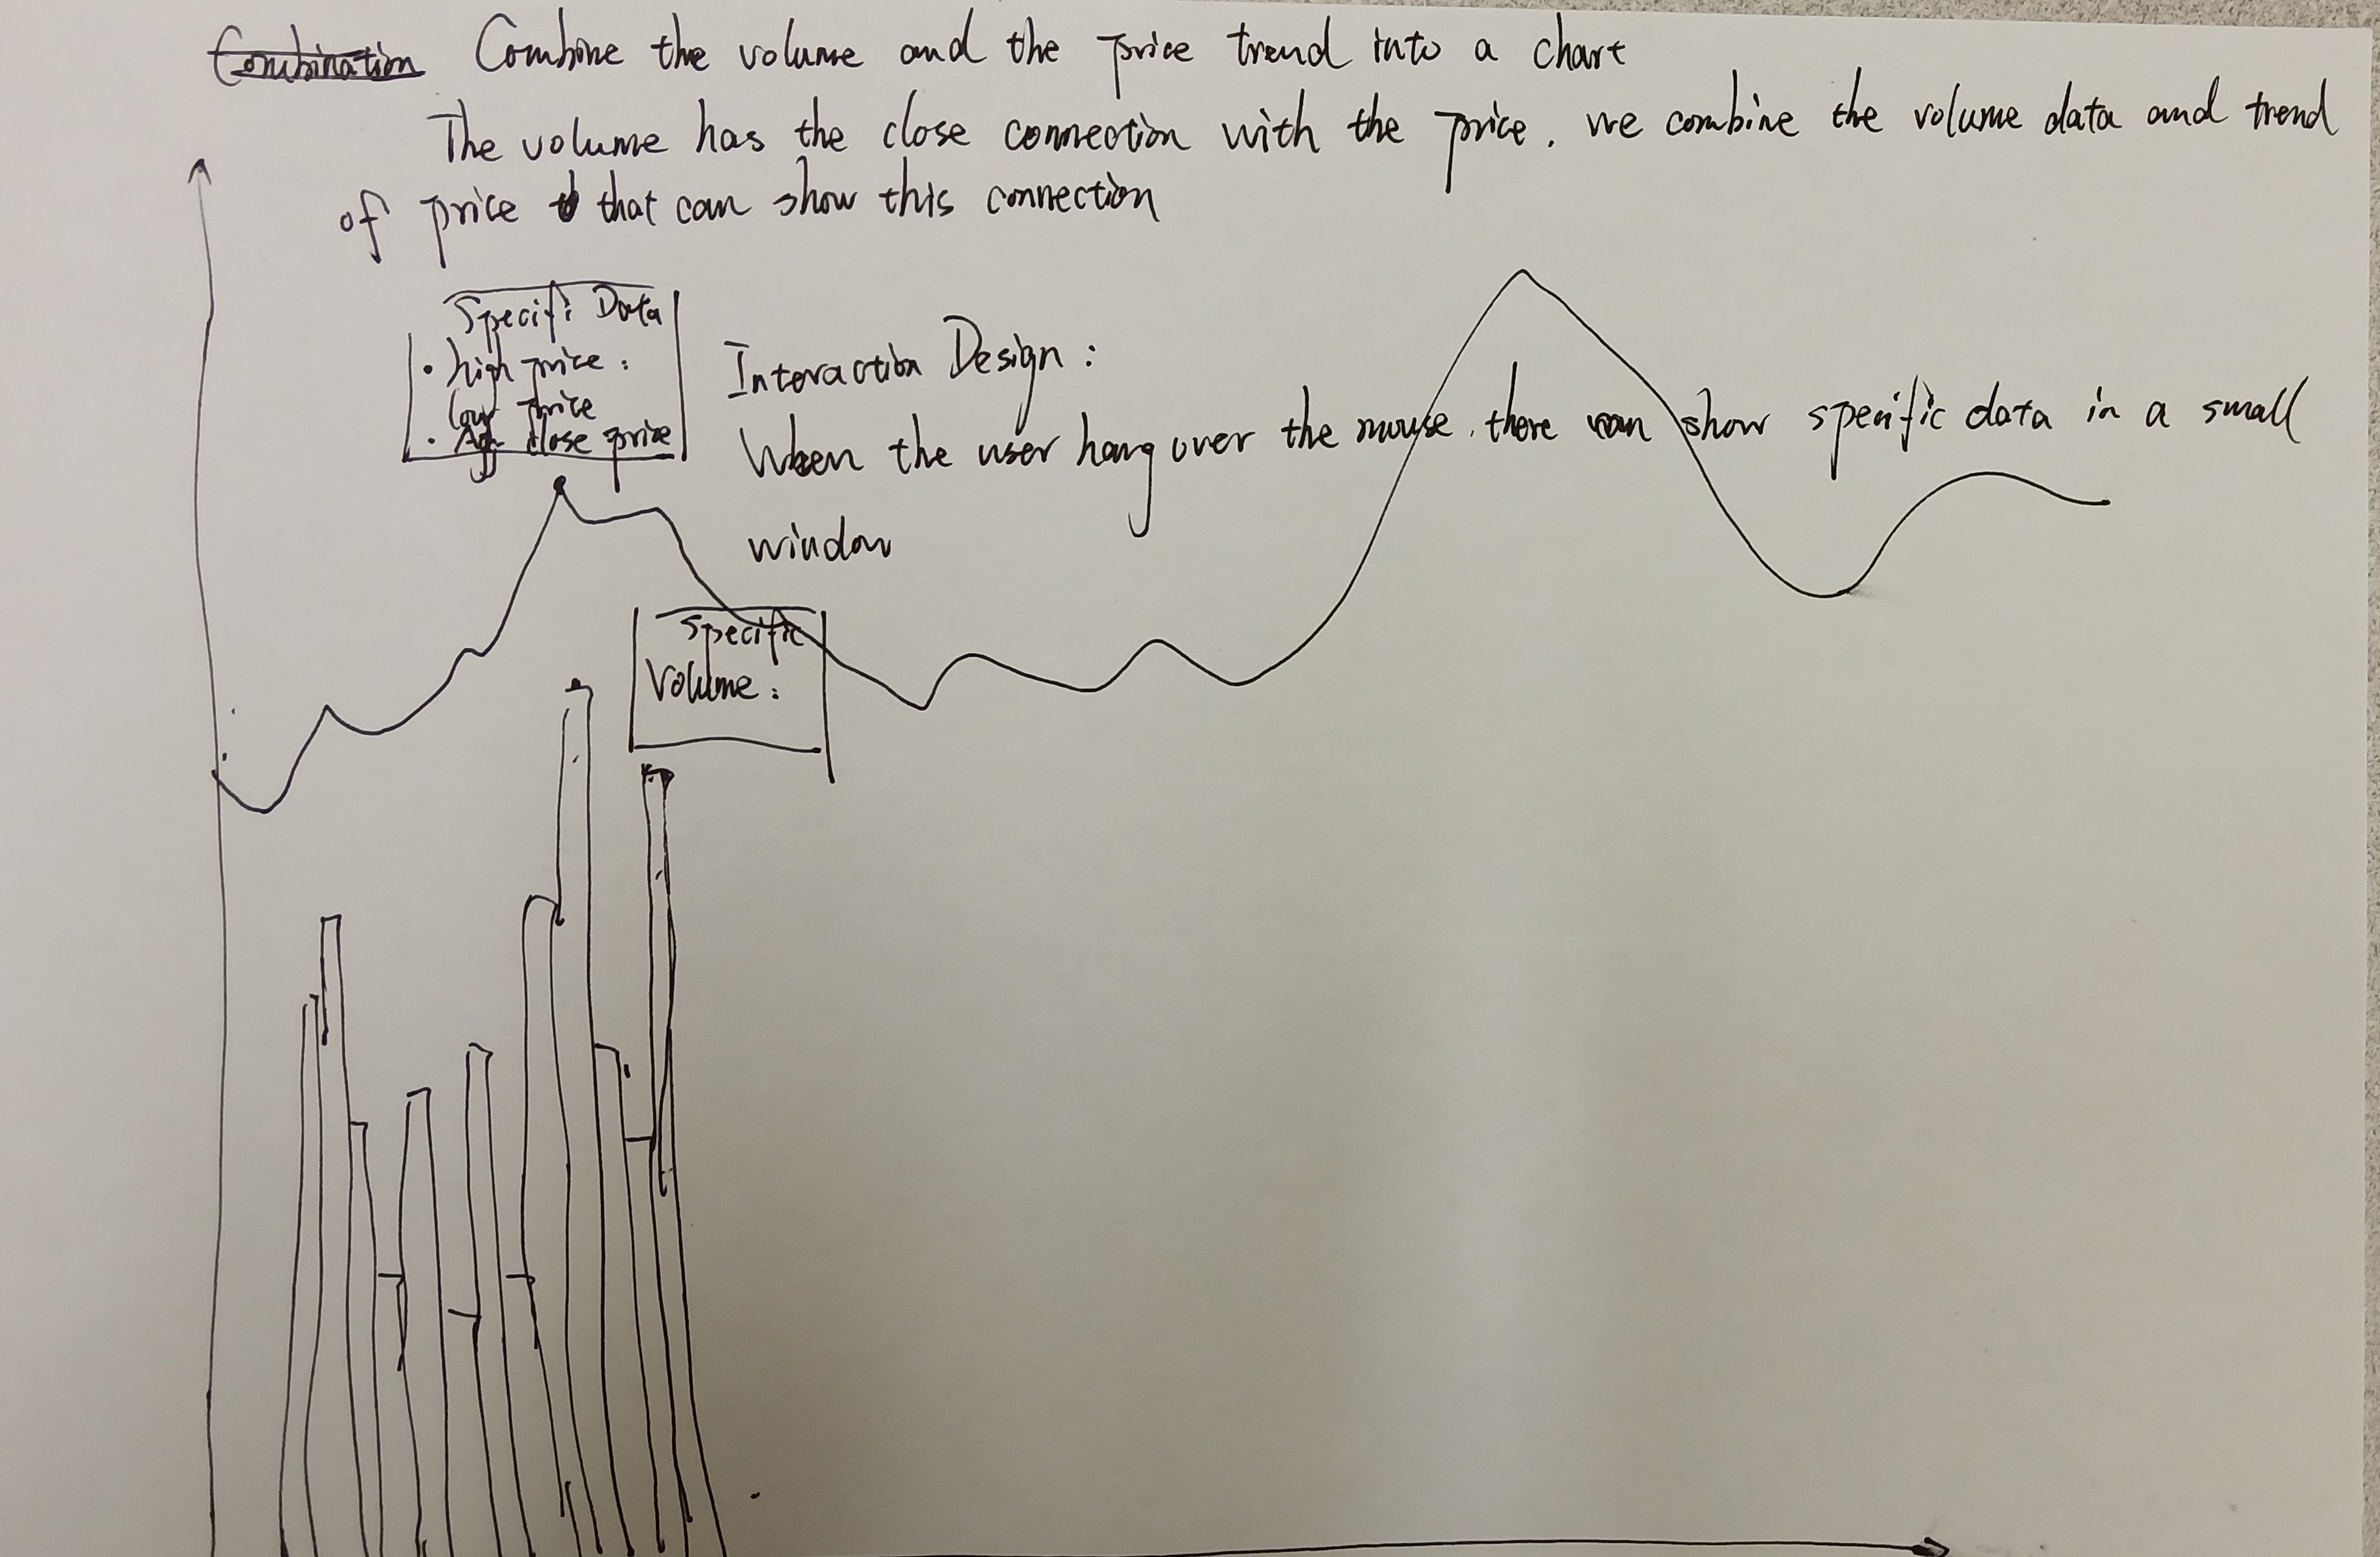 Combination Combine the volume and the price trend into a chart
The volume has the close connection with the price. we combine the volume data and trend
of price that can show this connection
Specifi Data
• high price :
low price
• close price
Interaction Design :
When the user hang over the mouse. there can show specific data in a small
window
Specific
Volume :